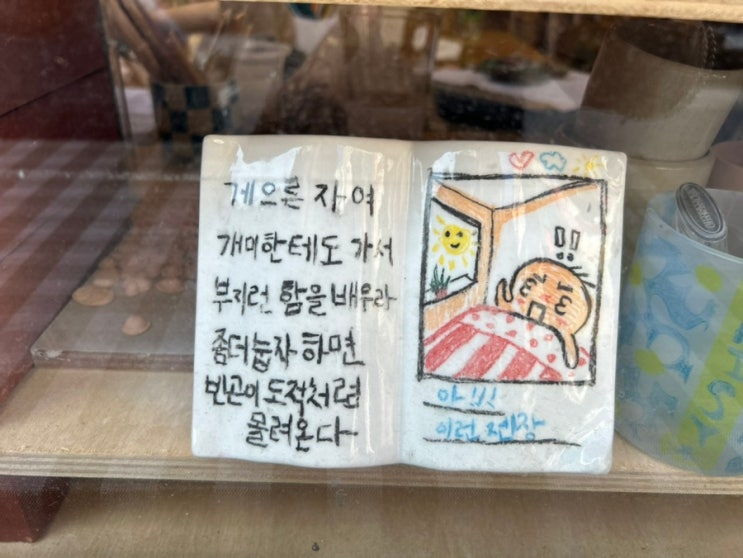 게으른 자여
개미한테도 가서
부지런 함을 배우라
좀더눕자 하면
빈곤이 도적처럼
몰려온다
아!!!
이런 젠장